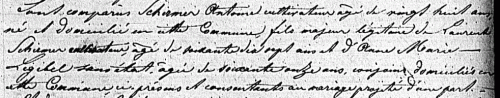 Sont comparus Schirmer Antoine cultivateur agé de vingt huit ans
né et domicilié en cette Commune, fils majeur légitime de Laurent
Schirmer cultivateur agé de soixante dix sept ans et d'Anne Marie
sans état, agé de soixante onze ans, conjoints domiciliés en
cette Commune ci présents et consentants au mariage projeté d'une part.